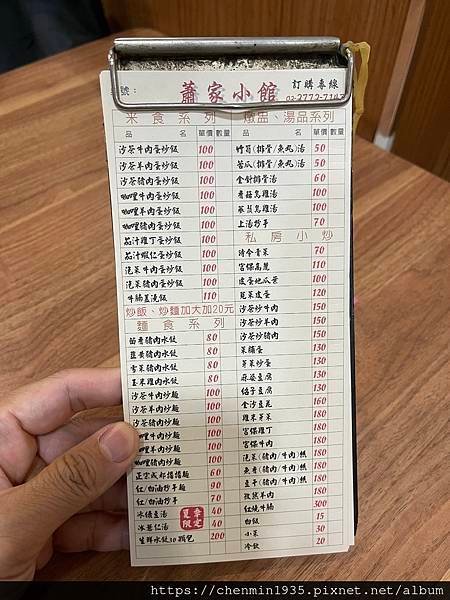 號：
蕭家小館
訂購專線
02-2772-7143
米食系列
品名 單價 數量
沙茶牛肉蛋炒飯 100
沙茶羊肉蛋炒飯 100
沙茶豬肉蛋炒飯 100
咖哩牛肉蛋炒飯 100
咖哩羊肉蛋炒飯 100
咖哩豬肉蛋炒飯 100
茄汁雞丁蛋炒飯 100
茄汁蝦仁蛋炒飯 100
泡菜牛肉蛋炒飯 100
泡菜豬肉蛋炒飯 100
牛腩蓋澆飯 110
炒飯、炒麵加大加20元
麵食系列
茴香豬肉水餃 80
韭黃豬肉水餃 80
雪菜豬肉水餃 80
玉米雞肉水餃 80
沙茶牛肉炒麵 100
沙茶羊肉炒麵 100
沙茶豬肉炒麵 100
咖哩牛肉炒麵 100
咖哩羊肉炒麵 100
咖哩豬肉炒麵 100
正宗成都擔擔麵 60
紅/白油炒手麵 90
紅/白油炒手 70
冰綠豆湯 40
冰薏仁湯 40
夏季限定
生鮮水餃30顆包 200
燉盅、湯品系列
品名 單價 數量
竹筍(排骨/魚丸)湯 50
苦瓜(排骨/魚丸)湯 50
金針排骨湯 60
香菇烏雞湯 100
人蔘烏雞湯 100
上湯抄手 70
私房小炒
時令青菜 70
宮保高麗 110
皮蛋地瓜葉 100
莧菜皮蛋 120
沙茶炒牛肉 150
沙茶炒羊肉 150
沙茶炒豬肉 150
菜脯蛋 130
芽菜炒蛋 130
麻婆豆腐 130
絡子豆腐 160
金沙豆花 160
雞米芽菜 180
宮保雞丁 180
宮保牛肉 180
泡菜(豬肉/牛肉)絲 180
魚香(豬肉/牛肉)絲 180
豆干(豬肉/牛肉)絲 180
孜然羊肉 180
紅燒牛腩 300
白飯 15
小菜 30
冷飲 20
https://chenmin1935.pixnet.net/album